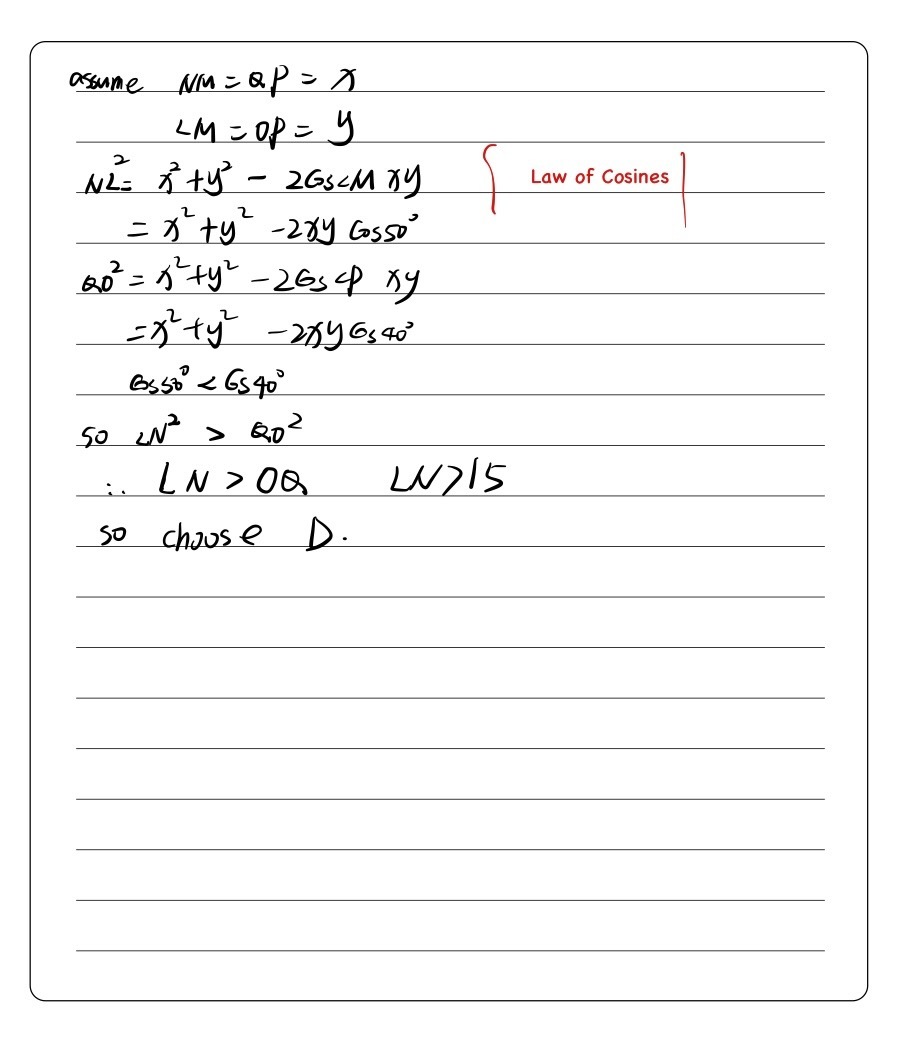 assume NM = QP = x
LM = OP = y
NL² = x² + y² - 2Cos∠M xy
Law of Cosines
= x² + y² - 2xy Cos50°
QO² = x² + y² - 2Cos∠P xy
= x² + y² - 2xy Cos40°
Cos50° < Cos40°
so LN² > QO²
∴ LN > OQ LN > 15
so choose D.